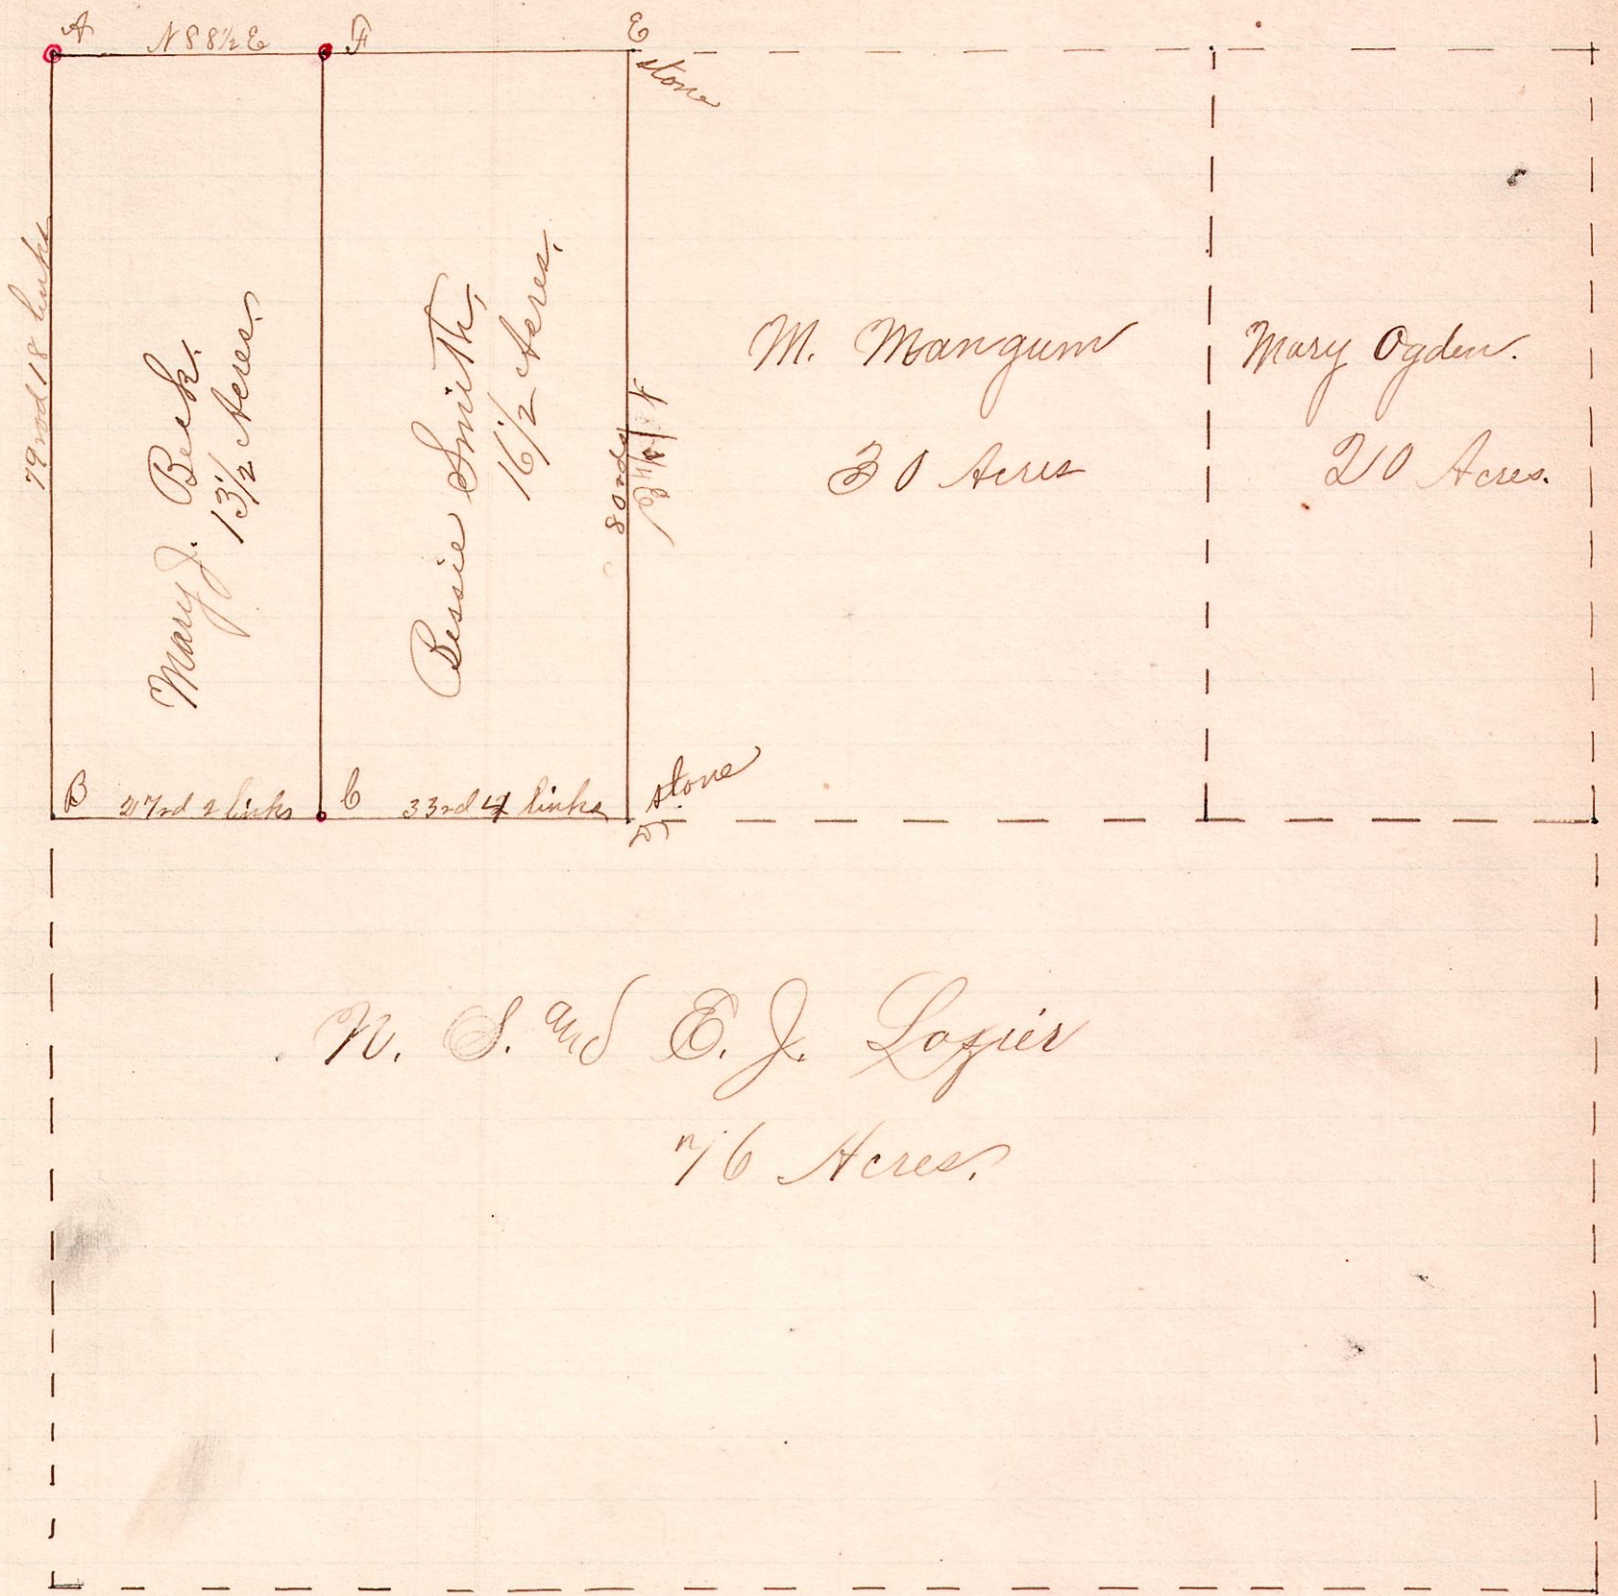 A N 88½ E F E
stone
79 rod 18 links
Mary J. Beck.
13½ Acres.
Bessie Smith,
16½ Acres.
80 rods
M. Mangum
30 Acres
Mary Ogden.
20 Acres.
B 27rd 2 links C 33rd 4 links
stone
D
N. S. and E. J. Lozier
76 Acres.